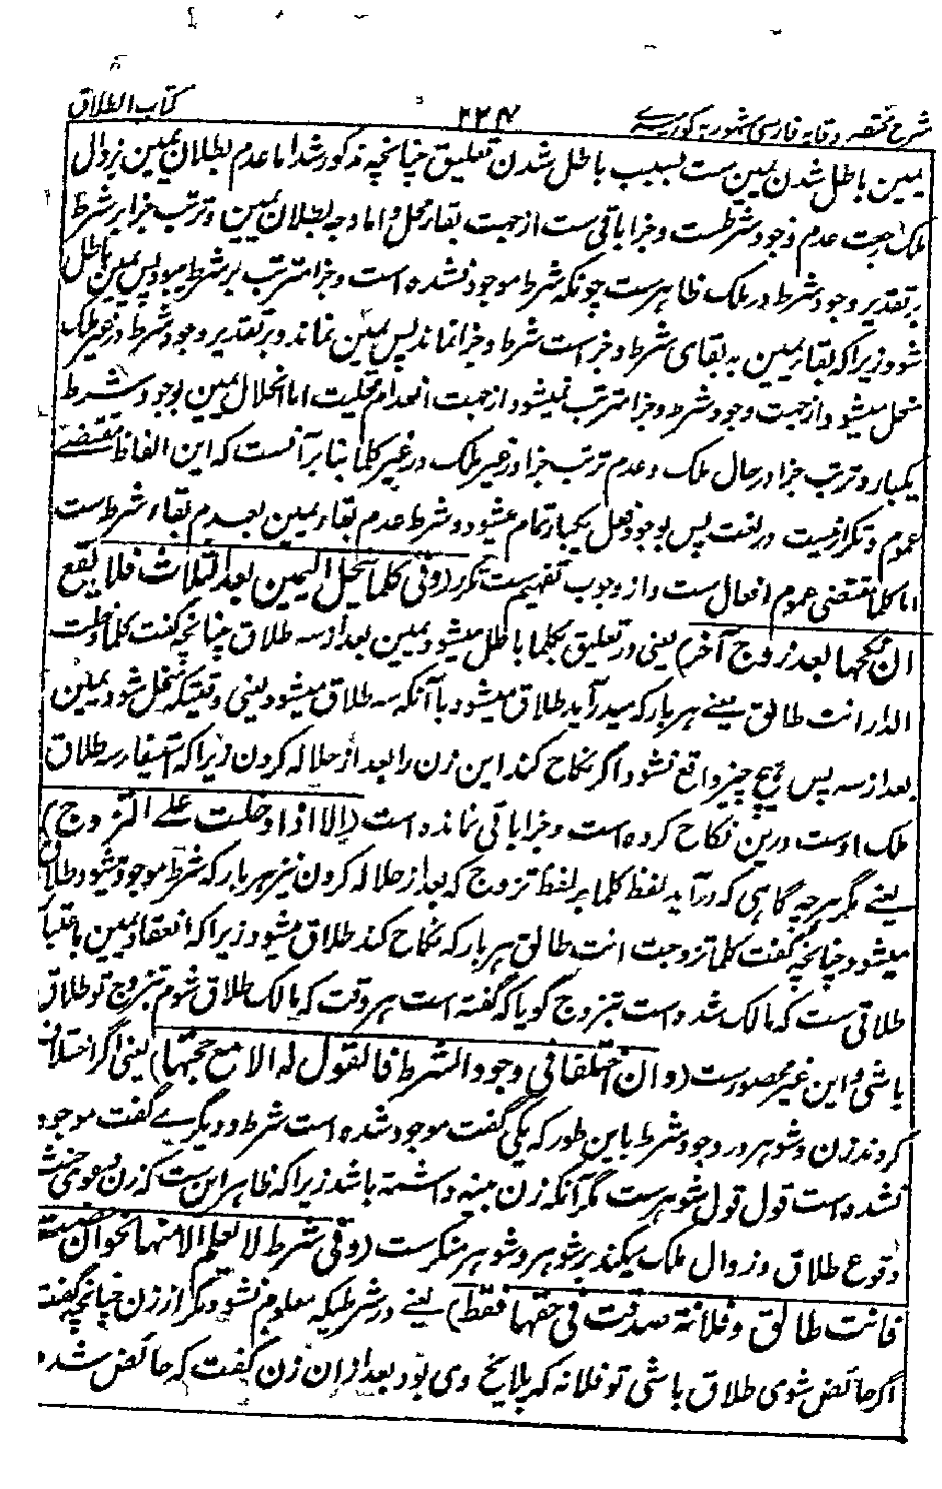 شرح مختصر وقایہ فارسی مشہور بہ کور میرے
۲۳۴
کتاب الطلاق
یمین باطل شدن یمین ست بسبب باطل شدن تعلیق چنانچہ مذکور شد اما عدم بطلان یمین بزوال
ملک بجہت عدم وجود شرطست و جزا باقی ست از جہت بقاء محل و اما وجہ بطلان یمین و ترتب جزا بر شرط
بر تقدیر وجود شرط در ملک ظاہر ست چونکہ شرط موجود نشدہ است و جزا مترتب بر شرط میبود پس یمین باطل
شود زیرا کہ بقاء یمین بہ بقای شرط و جزا است شرط و جزا نماند پس یمین نماند و بر تقدیر وجود شرط در غیر ملک
منحل میشود از جہت وجود شرط و جزا مترتب نمیشود از جہت انعدام محلیت اما انحلال یمین بوجود شرط
یکبار و ترتب جزا در حال ملک و عدم ترتب جزا در غیر ملک در غیر کلما بنا بر آنست کہ این الفاظ مقتضے
عموم و تکرار نیست در لغت پس بوجود فعل یکبار تمام میشود شرط عدم بقاء یمین بعدم بقاء شرط ست
اما کلما مقتضی عموم افعال ست و از وجوب تعمیم ست تکرر (وفی کلما ینحل الیمین بعد الثلاث فلا یقع
ان نکحہا بعد زوج آخر) یعنی در تعلیق بکلما باطل میشود یمین بعد از سہ طلاق چنانچہ گفت کلما دخلت
الدار انت طالق یعنے ہر بار کہ میدرآید طلاق میشود با آنکہ سہ طلاق میشود یعنی وقتیکہ منحل شود یمین
بعد از سہ پس ہیچ چیز واقع نشود اگر نکاح کند این زن را بعد از حلالہ کردن زیرا کہ استیفاء سہ طلاق
ملک اوست درین نکاح کردہ است و جزا باقی نماندہ است (الا اذا دخلت علے التزوج)
یعنے مگر ہر چہ گاہی کہ درآید لفظ کلما بر لفظ تزوج کہ بعد از حلالہ کردن نیز ہر بار کہ شرط موجود میشود طلاق
میشود چنانچہ گفت کلما تزوجت انت طالق ہر بار کہ نکاح کند طلاق میشود زیرا کہ انعقاد یمین باعتبار
طلاقی ست کہ مالک شدہ است بتزوج گویا کہ گفتہ است ہر وقت کہ مالک طلاق شوم بتزوج تو طلاق
باشی و این غیر محصور ست (وان اختلفا فی وجود الشرط فالقول لہ الا مع حجتہا) یعنی اگر اختلاف
کردند زن و شوہر در وجود شرط باین طور کہ یکی گفت موجود شدہ است شرط و دیگرے گفت موجود
نشدہ است قول قول شوہر ست مگر آنکہ زن بینہ داشتہ باشد زیرا کہ ظاہر این ست کہ زن دعوی حنث
وقوع طلاق و زوال ملک میکند بر شوہر و شوہر منکر ست (وفی شرط لا یعلم الا منہا نحو ان حضت
فانت طالق و فلانۃ صدقت فی حقہا فقط) یعنے در شرطیکہ معلوم نشود مگر از زن چنانچہ گفت
اگر حائض شوی طلاق باشی تو فلانہ کہ پلایخ وی بود بعد از ان زن گفت کہ حائض شدم